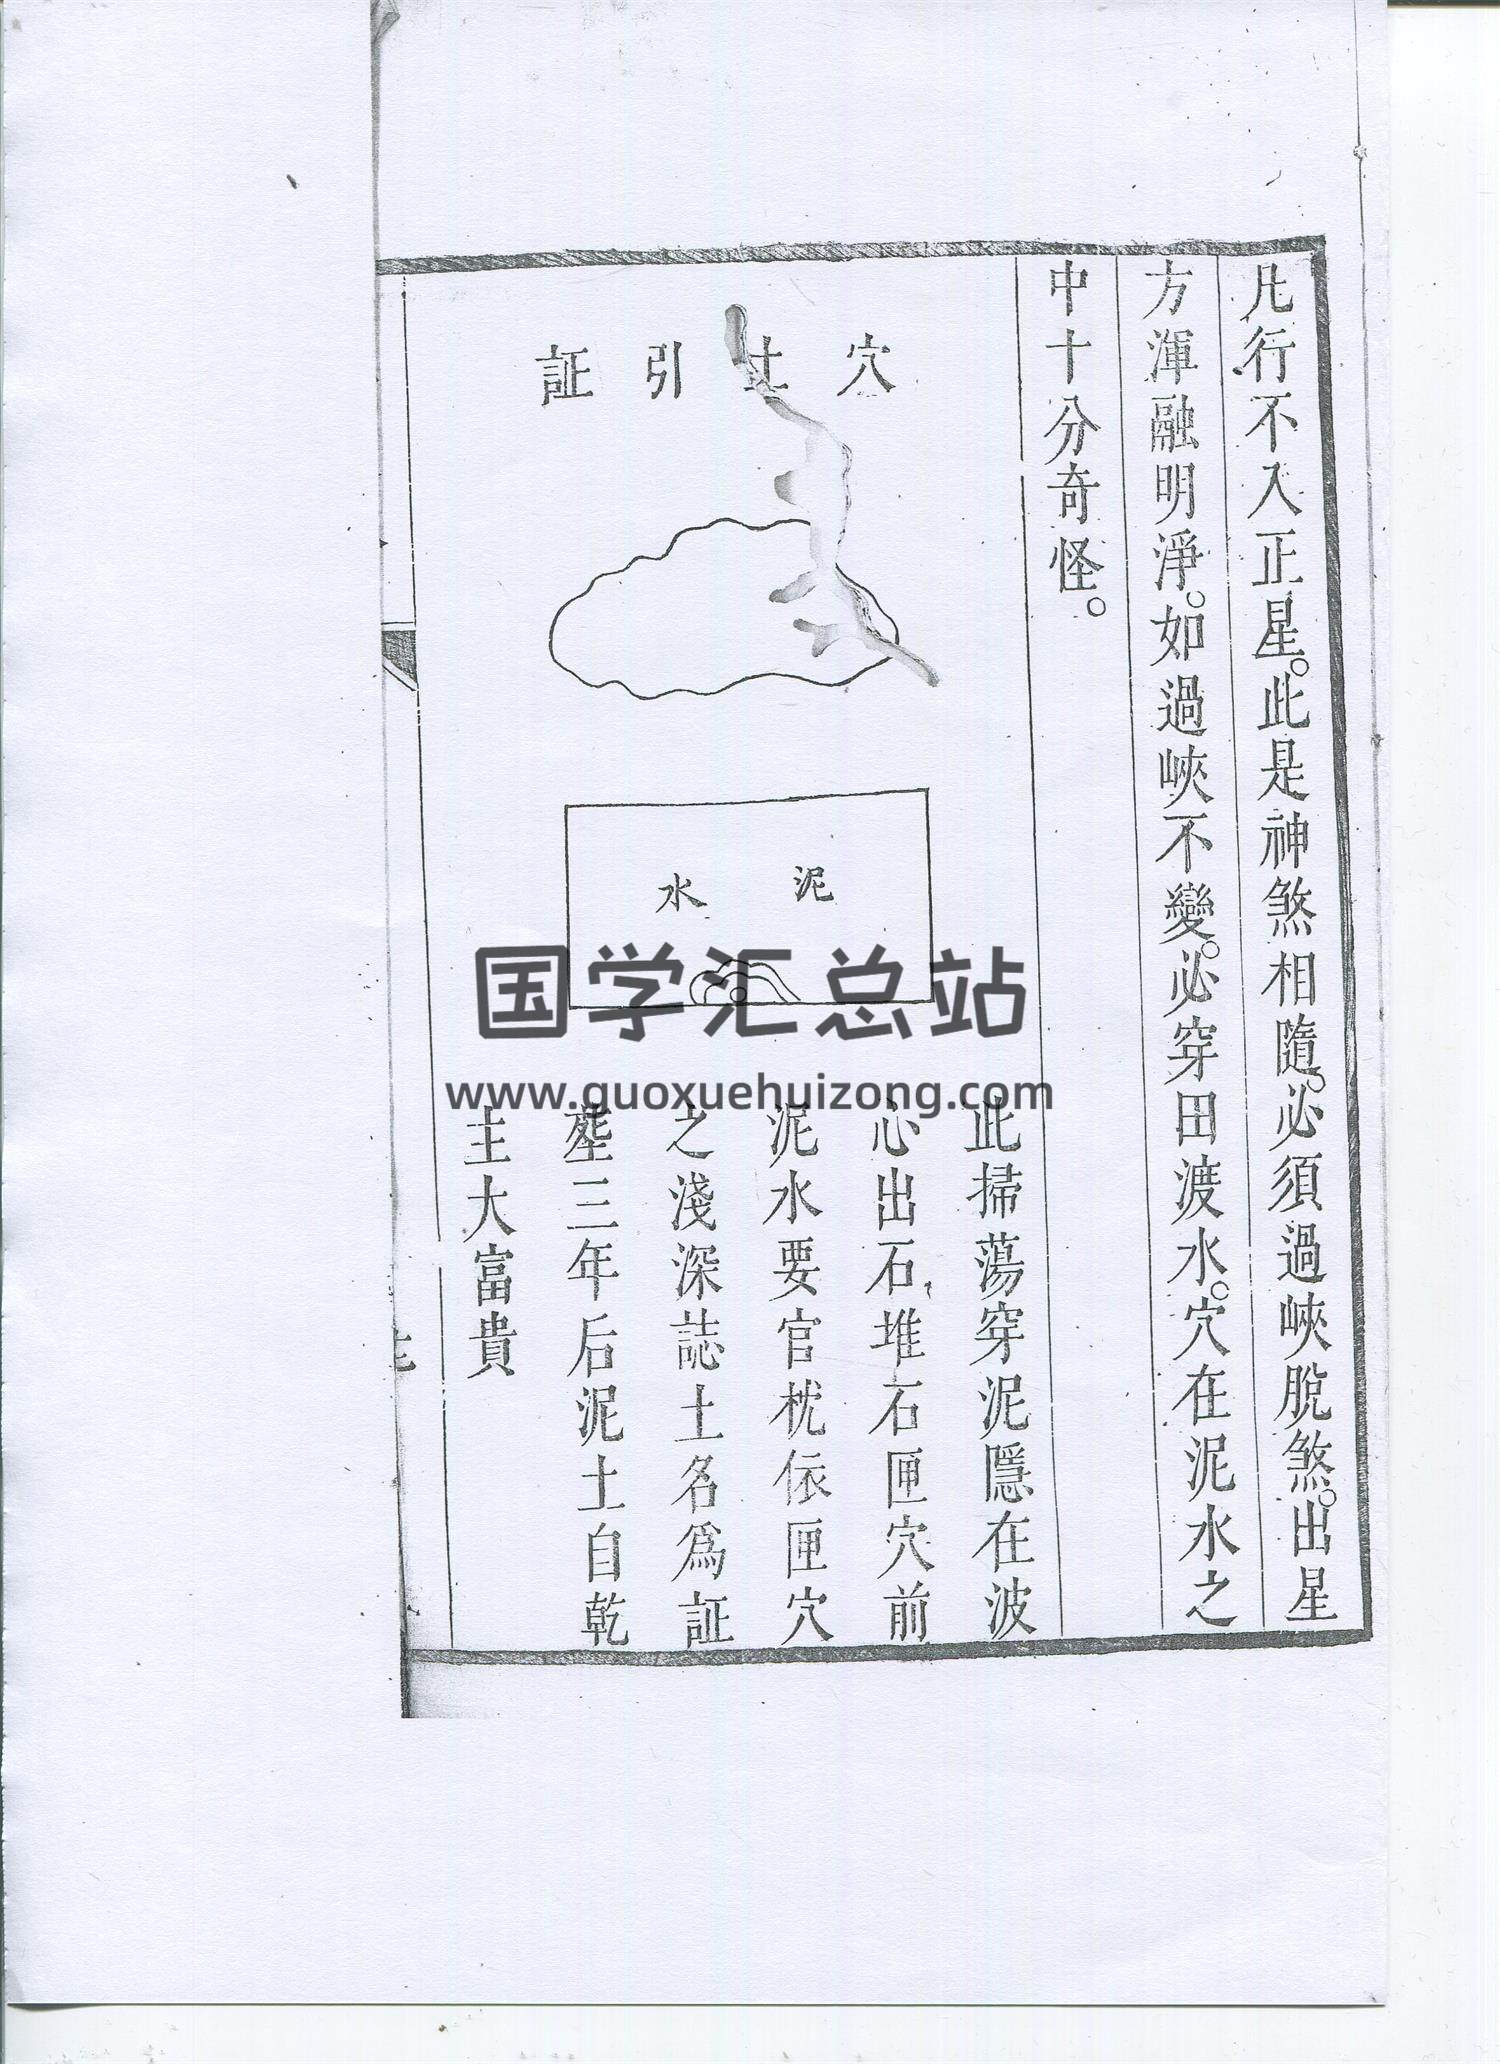 凡行不入正星。此是神煞相隨。必須過峽脫煞。出星
方渾融明淨。如過峽不變。必穿田渡水。穴在泥水之
中十分奇怪。
穴 引証
泥水
国学汇总站
www.guoxuehuizong.com
此掃蕩穿泥隱在波
心出石堆石匣穴前
泥水要官枕依匣穴
之淺深誌土名爲証
塟三年后泥土自乾
主大富貴